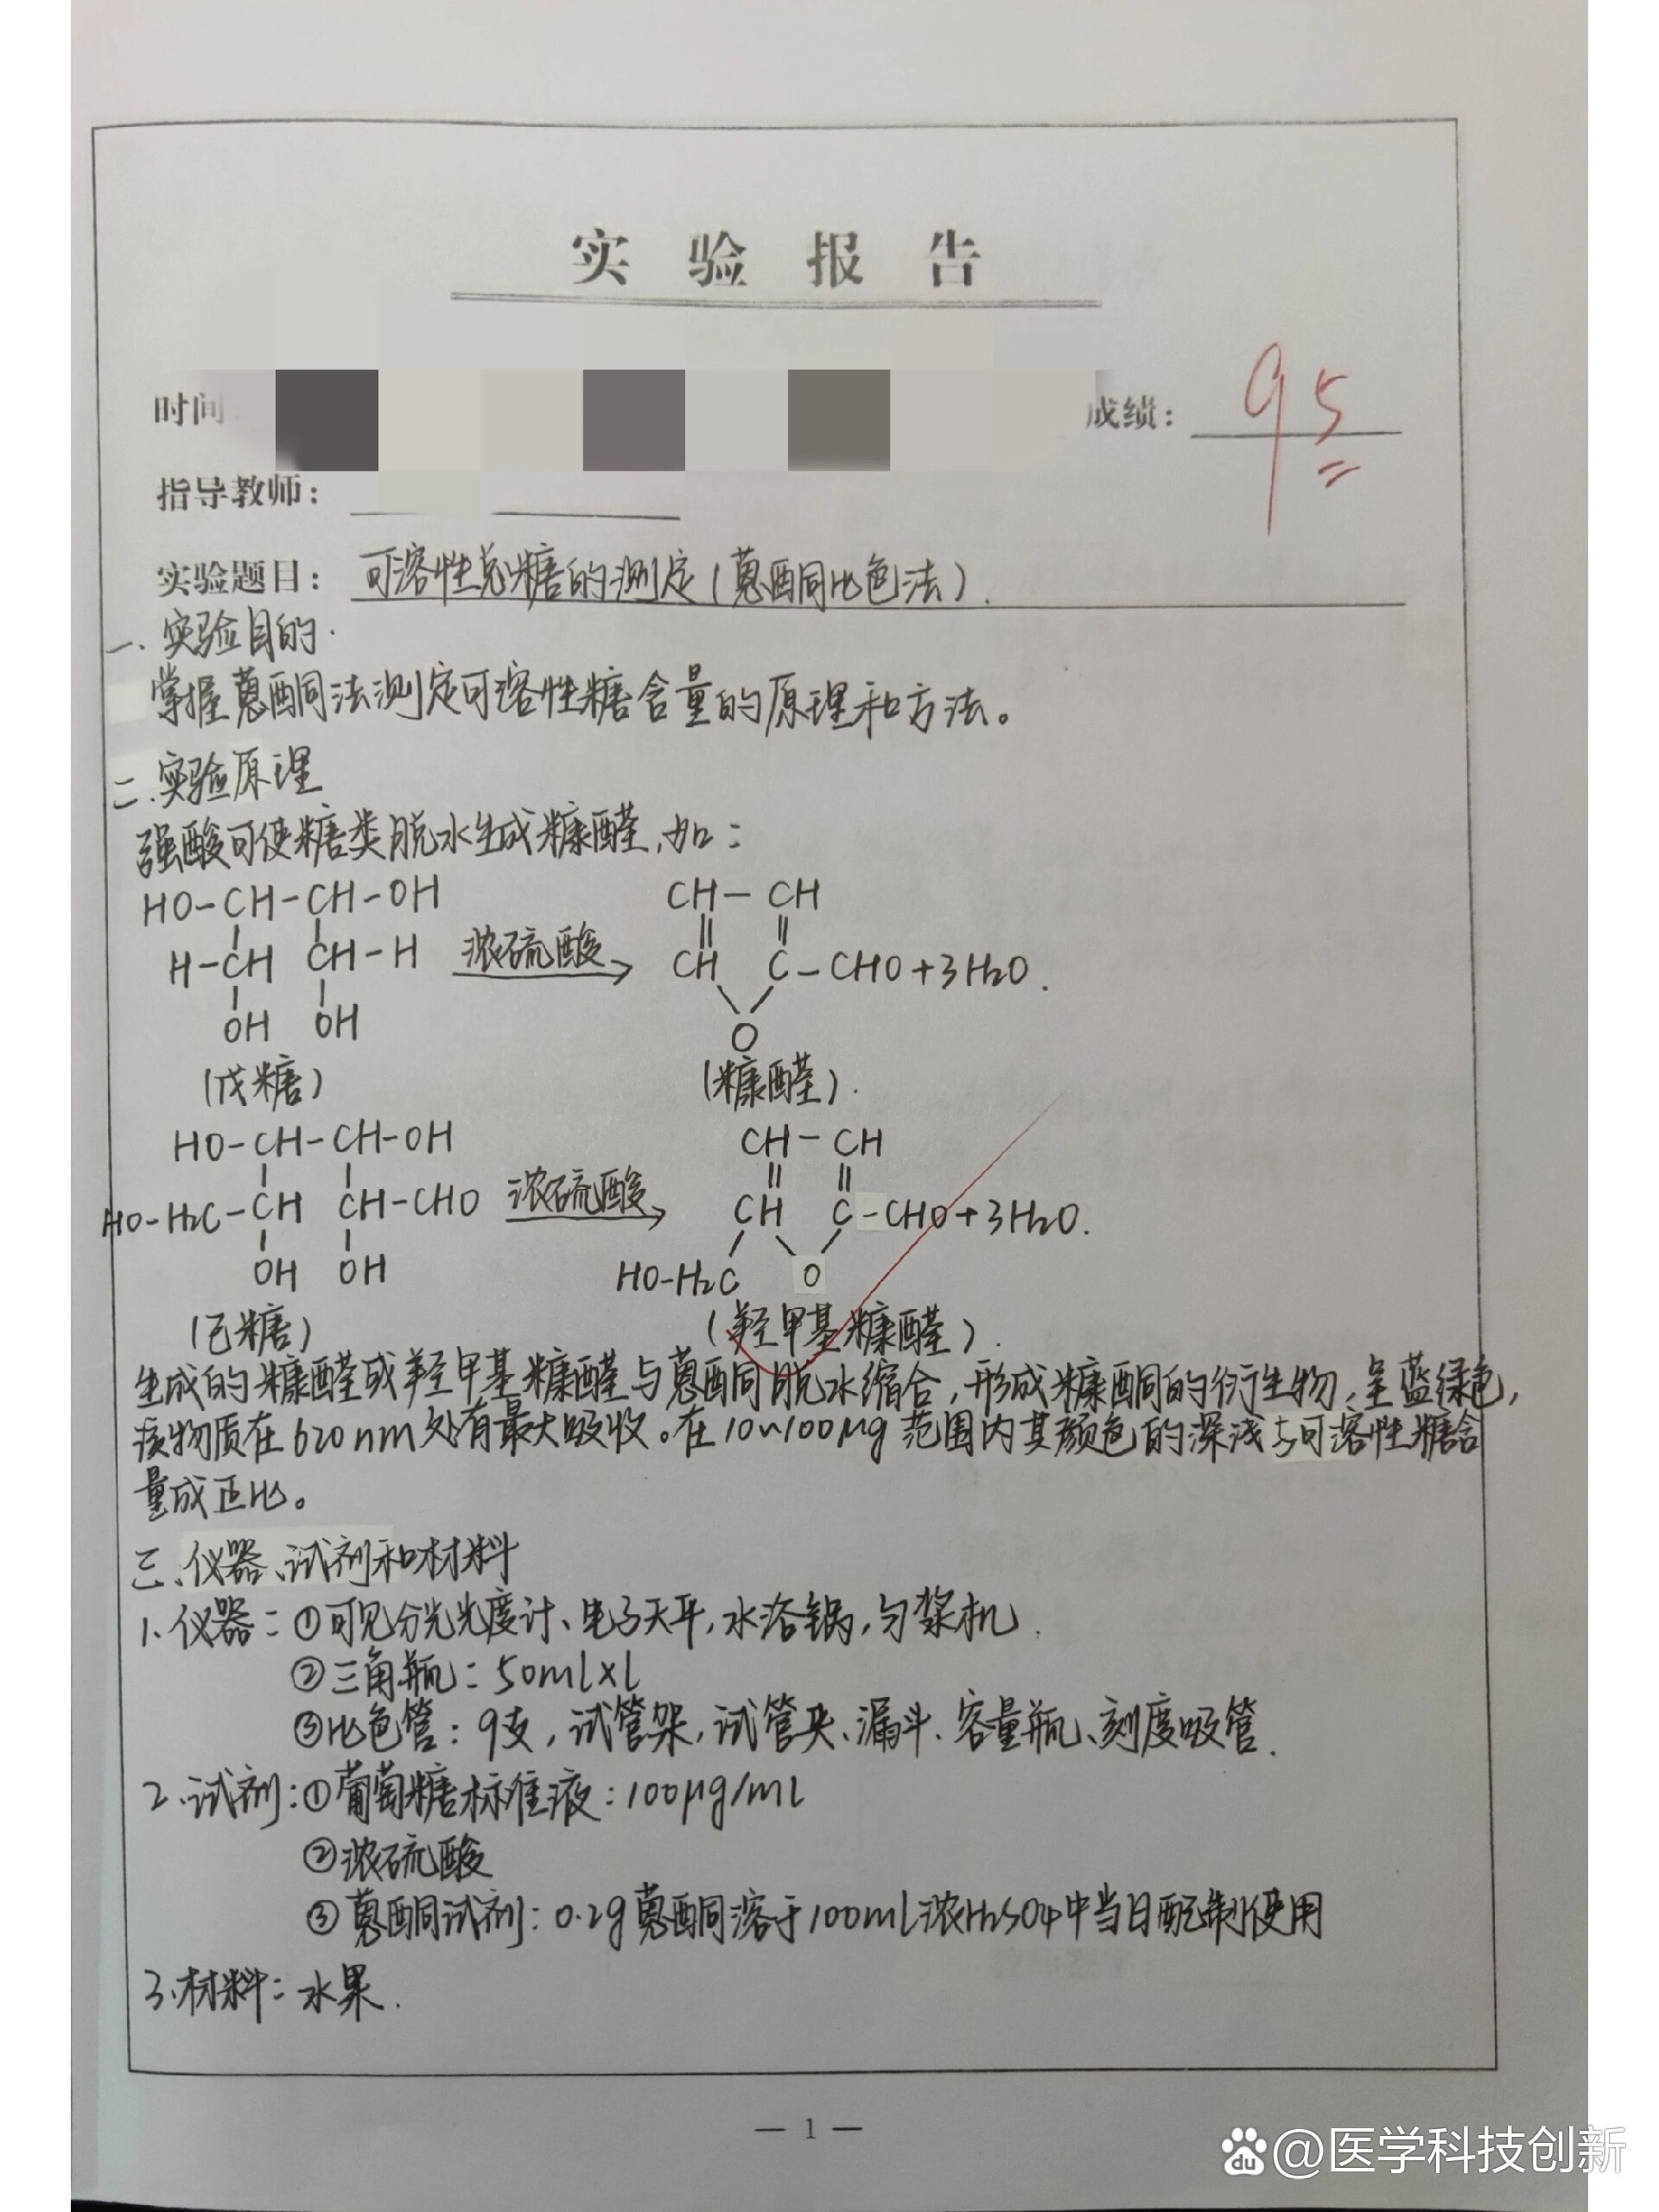 实验报告
时间:
成绩: 95
指导教师:
实验题目: 可溶性总糖的测定(蒽酮比色法).
一、实验目的.
掌握蒽酮法测定可溶性糖含量的原理和方法。
二.实验原理
强酸可使糖类脱水生成糠醛,如:
HO-CH-CH-OH CH-CH
H-CH CH-H 浓硫酸 CH C-CHO+3H₂O.
OH OH O
(戊糖) (糠醛).
HO-CH-CH-OH CH-CH
HO-H₂C-CH CH-CHO 浓硫酸 CH C-CHO+3H₂O.
OH OH HO-H₂C O
(己糖) (羟甲基糠醛).
生成的糠醛或羟甲基糠醛与蒽酮脱水缩合,形成糠酮的衍生物,呈蓝绿色,
该物质在620nm处有最大吸收。在10~100μg范围内其颜色的深浅与可溶性糖含
量成正比。
三、仪器、试剂和材料
1.仪器:①可见分光光度计、电子天平,水浴锅,匀浆机.
②三角瓶:50ml×1
③比色管:9支,试管架,试管夹、漏斗、容量瓶、刻度吸管.
2.试剂:①葡萄糖标准液:100μg/mL
②浓硫酸
③蒽酮试剂:0.2g蒽酮溶于100ml浓H₂SO₄中当日配制使用
3.材料:水果.
— 1 —
du @医学科技创新